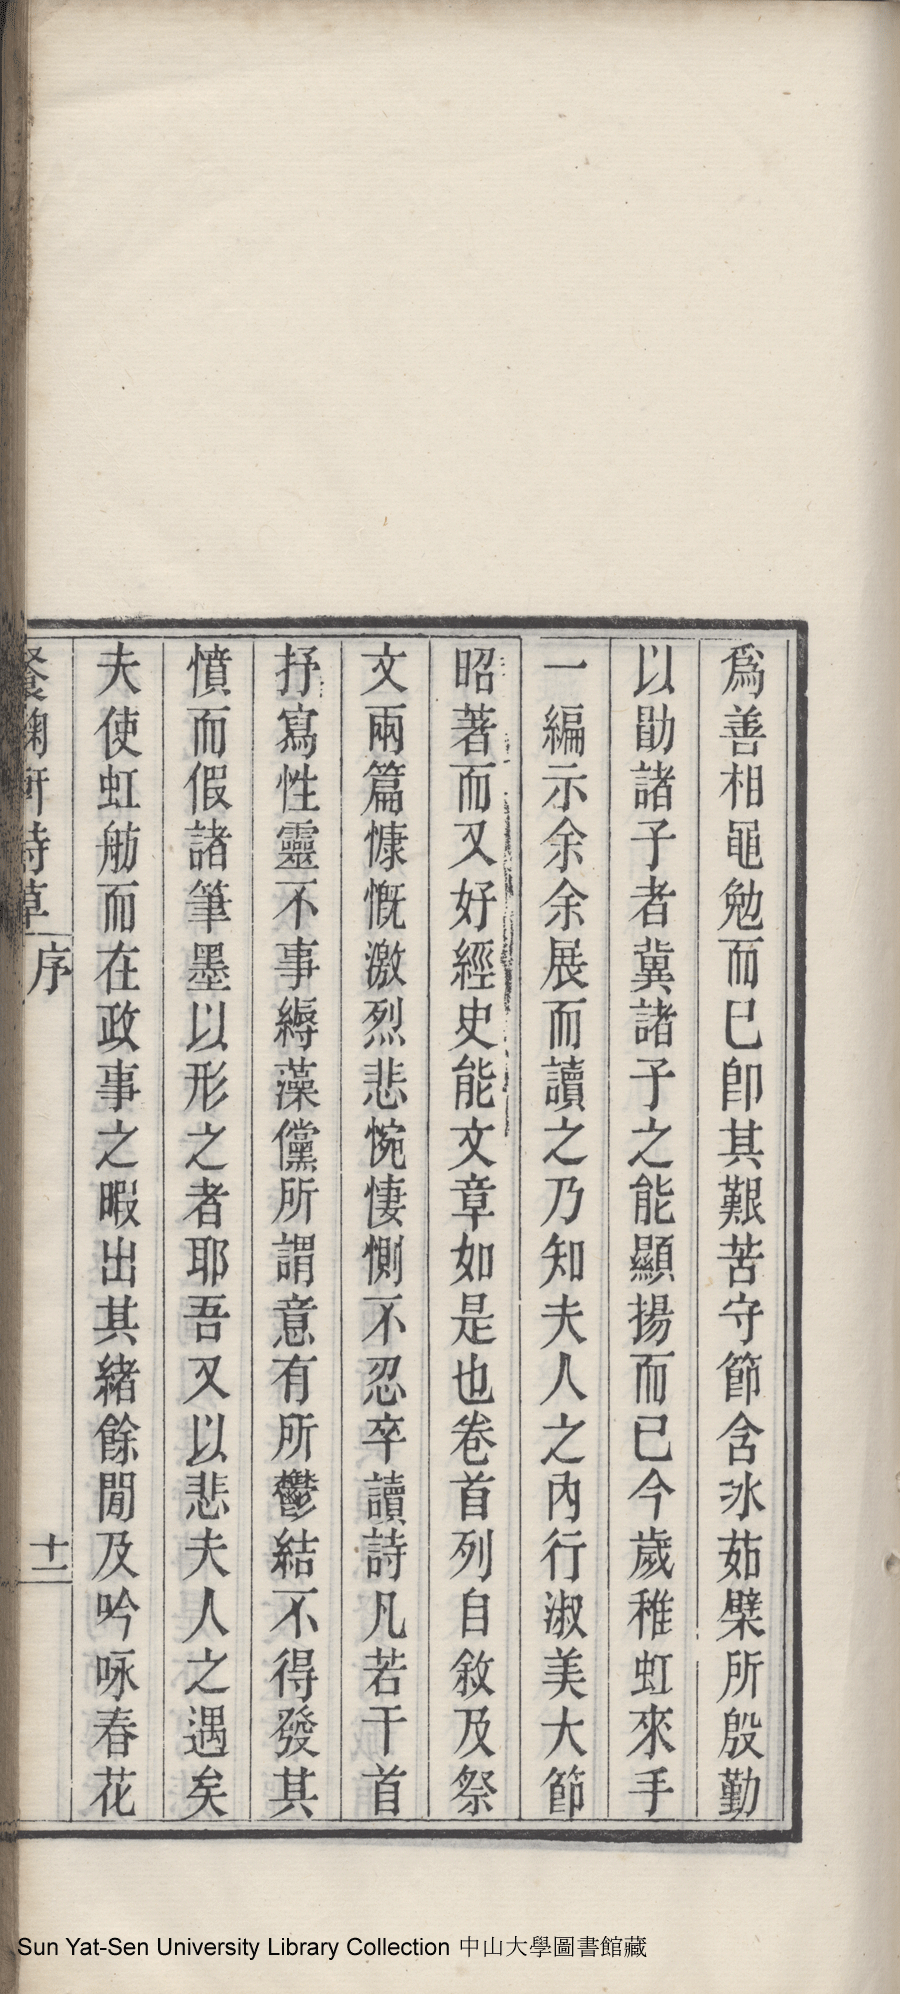 爲善相黽勉而已卽其艱苦守節含冰茹櫱所殷勤
以勖諸子者冀諸子之能顯揚而已今歲稚虹來手
一編示余余展而讀之乃知夫人之內行淑美大節
昭著而又好經史能文章如是也卷首列自敘及祭
文兩篇慷慨激烈悲惋悽惻不忍卒讀詩凡若干首
抒寫性靈不事縟藻儻所謂意有所鬱結不得發其
憤而假諸筆墨以形之者耶吾又以悲夫人之遇矣
夫使虹舫而在政事之暇出其緒餘閒及吟咏春花
餐菊軒詩草 序 十二
Sun Yat-Sen University Library Collection 中山大學圖書館藏